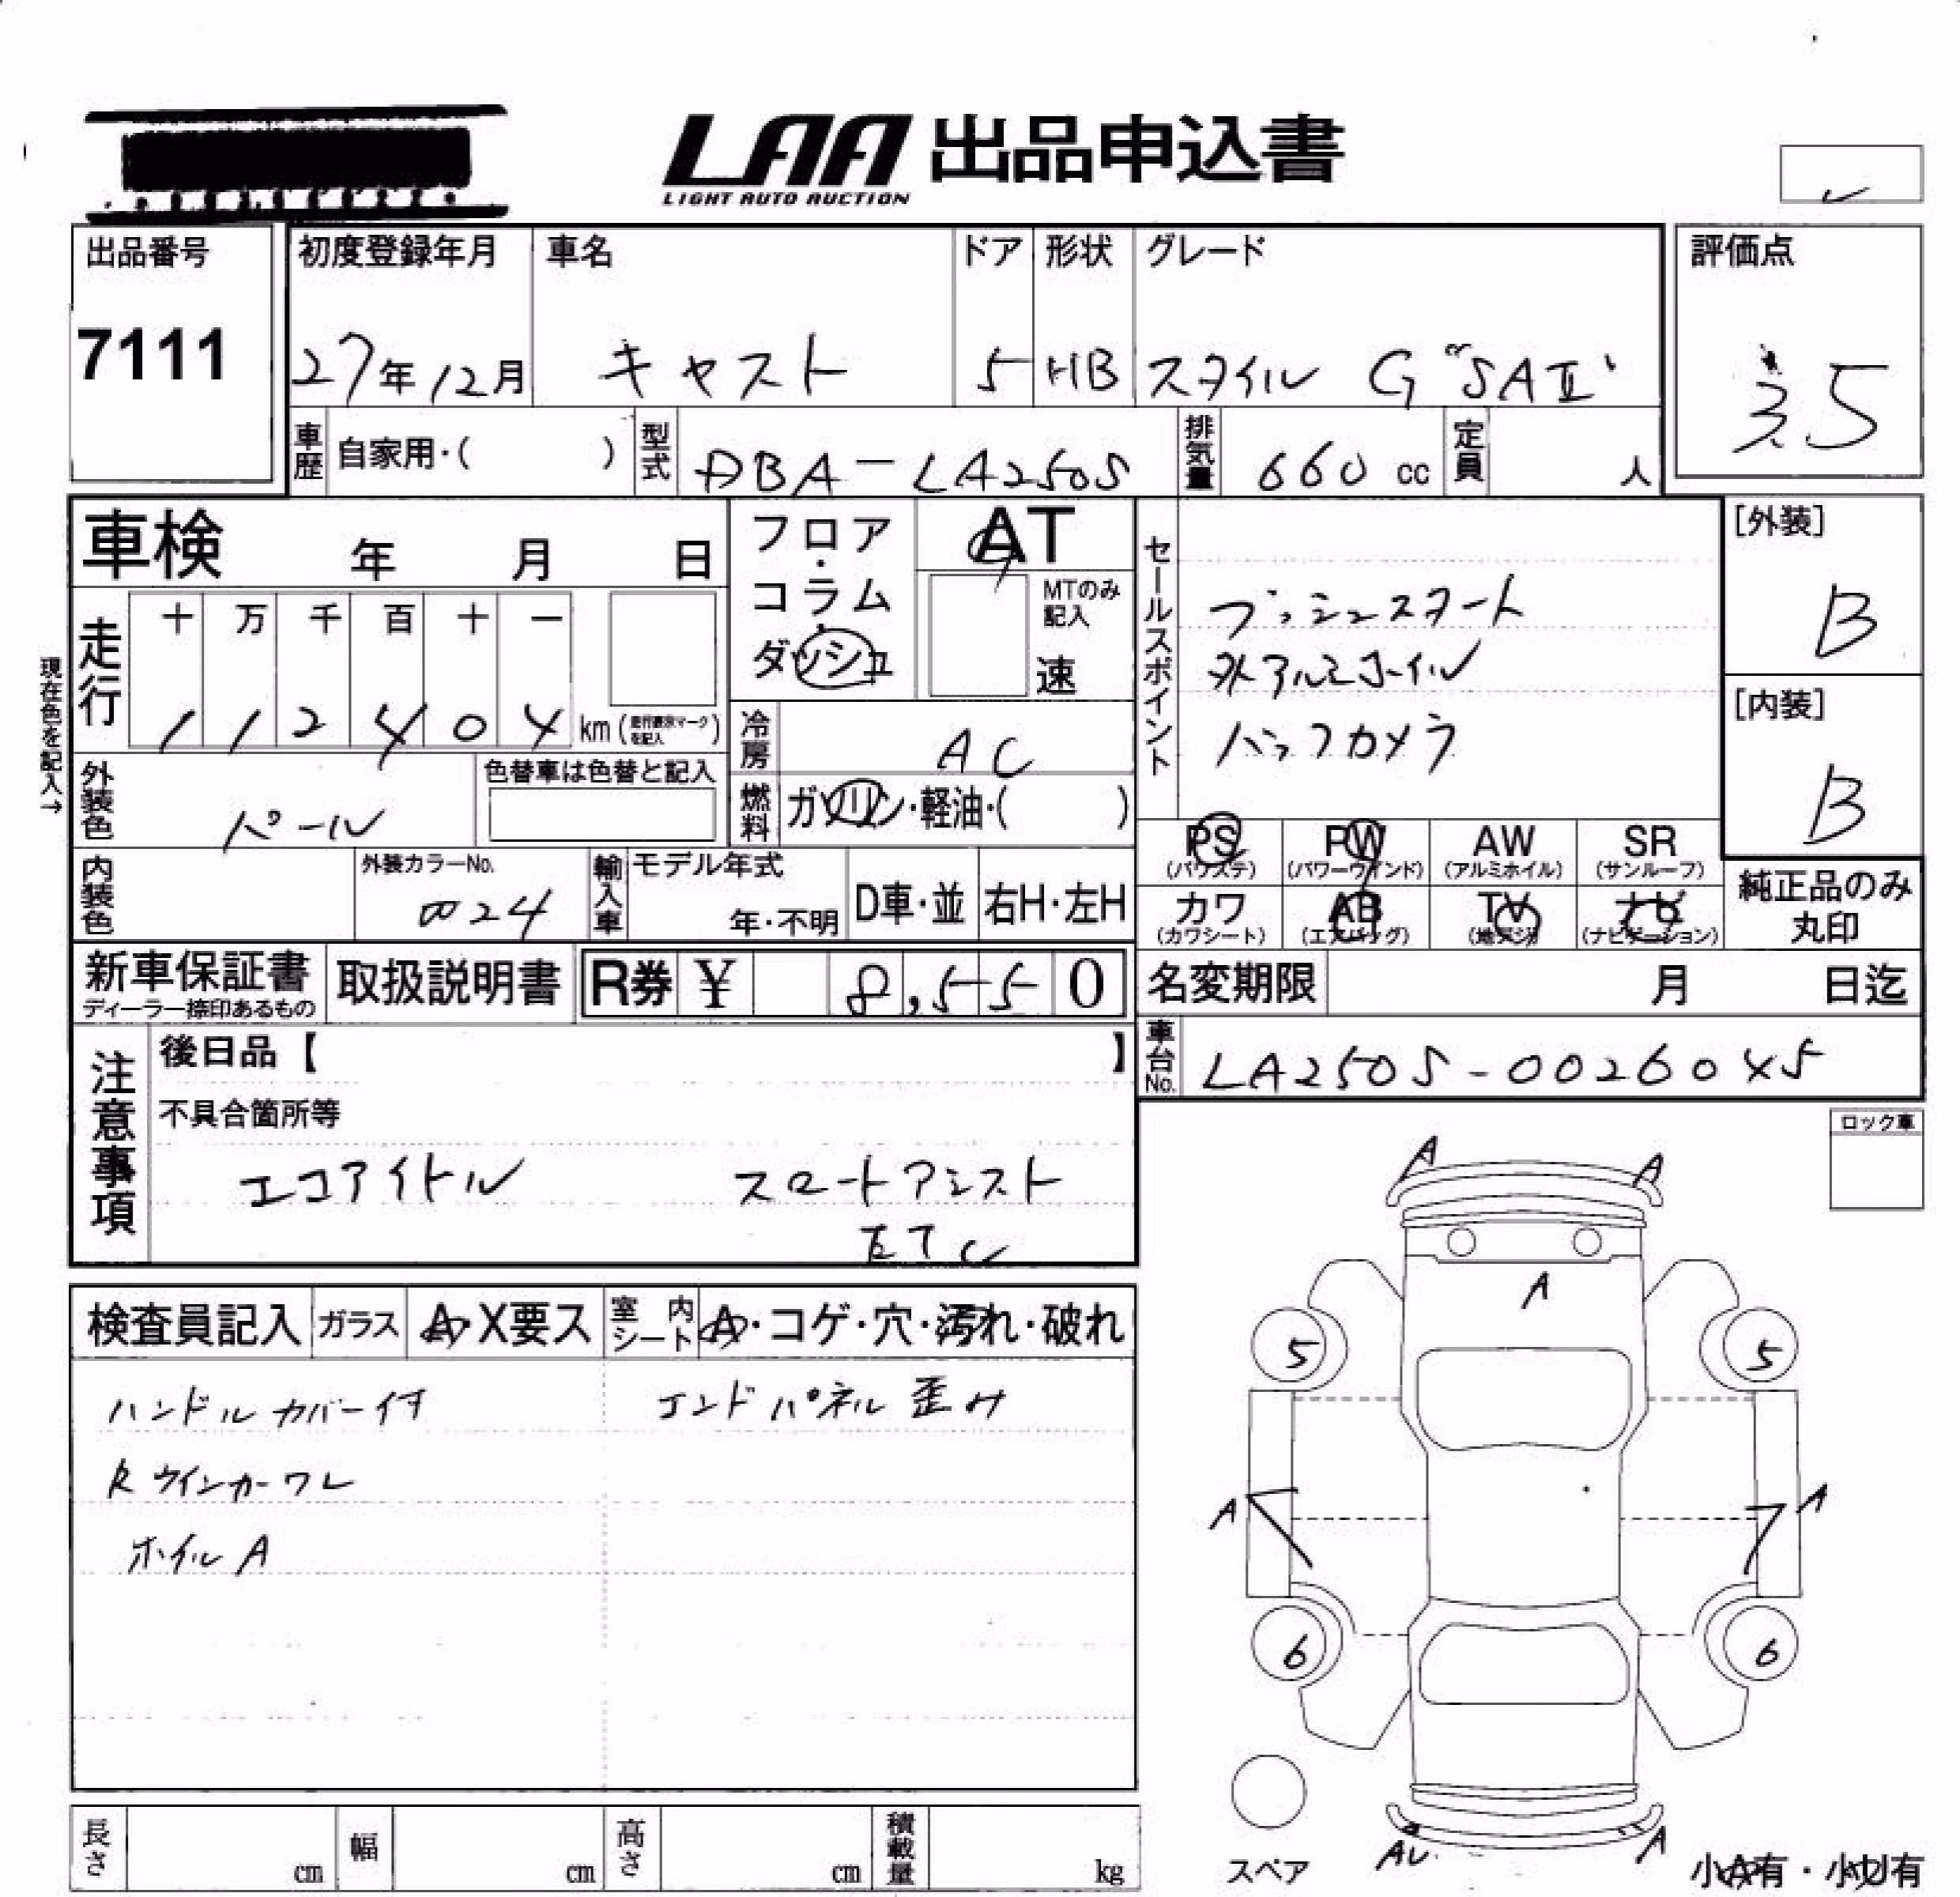 LAA 出品申込書
LIGHT AUTO AUCTION
出品番号
7111
初度登録年月
27年12月
車名
キャスト
ドア
5
形状
HB
グレード
スタイル G "SAⅡ"
評価点
3.5
車歴 自家用・( )
型式 DBA-LA250S
排気量 660 cc
定員 人
車検 年 月 日
フロア・コラム・ダッシュ
AT
MTのみ記入
速
セールスポイント
プッシュスタート
外アルミホイル
バックカメラ
[外装]
B
[内装]
B
現在色を記入→
走行
十 万 千 百 十 一
1 1 2 4 0 4 km (走行表示マークを記入)
冷房 AC
燃料 ガソリン・軽油・( )
外装色 パール
色替車は色替と記入
内装色
外装カラーNo.
W24
輸入車
モデル年式
年・不明
D車・並
右H・左H
PS (パワステ)
PW (パワーウインド)
AW (アルミホイル)
SR (サンルーフ)
カワ (カワシート)
AB (エアバッグ)
TV (地デジ)
ナビ (ナビゲーション)
純正品のみ丸印
新車保証書
ディーラー捺印あるもの
取扱説明書
R券 ¥ 8,550
名変期限 月 日迄
車台No. LA250S-0026045
注意事項
後日品【 】
不具合箇所等
エコアイドル スマートアシスト
ETC
ロック車
検査員記入
ガラス A・X要ス
室内シート A・コゲ・穴・汚れ・破れ
ハンドルカバー付 エンドパネル歪み
R ウインカーワレ
ホイルA
A A
A
5 5
A A
6 6
スペア
AU A
小A有・小U有
長さ cm
幅 cm
高さ cm
積載量 kg